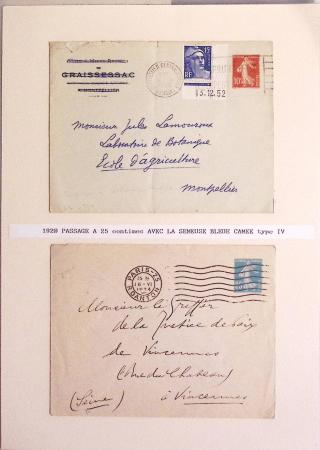 GRAISSESSAC
MONTPELLIER
15F
10
13.12.52
Monsieur Jules Lamouroux
Laboratoire de Botanique
Ecole d'agriculture
Montpellier
1920 PASSAGE A 25 centimes AVEC LA SEMEUSE BLEUE CAMEE type IV
PARIS-25
R. DANTON
1924
Monsieur le Greffier
de la Justice de Paix
de Vincennes
(Seine)
à Vincennes